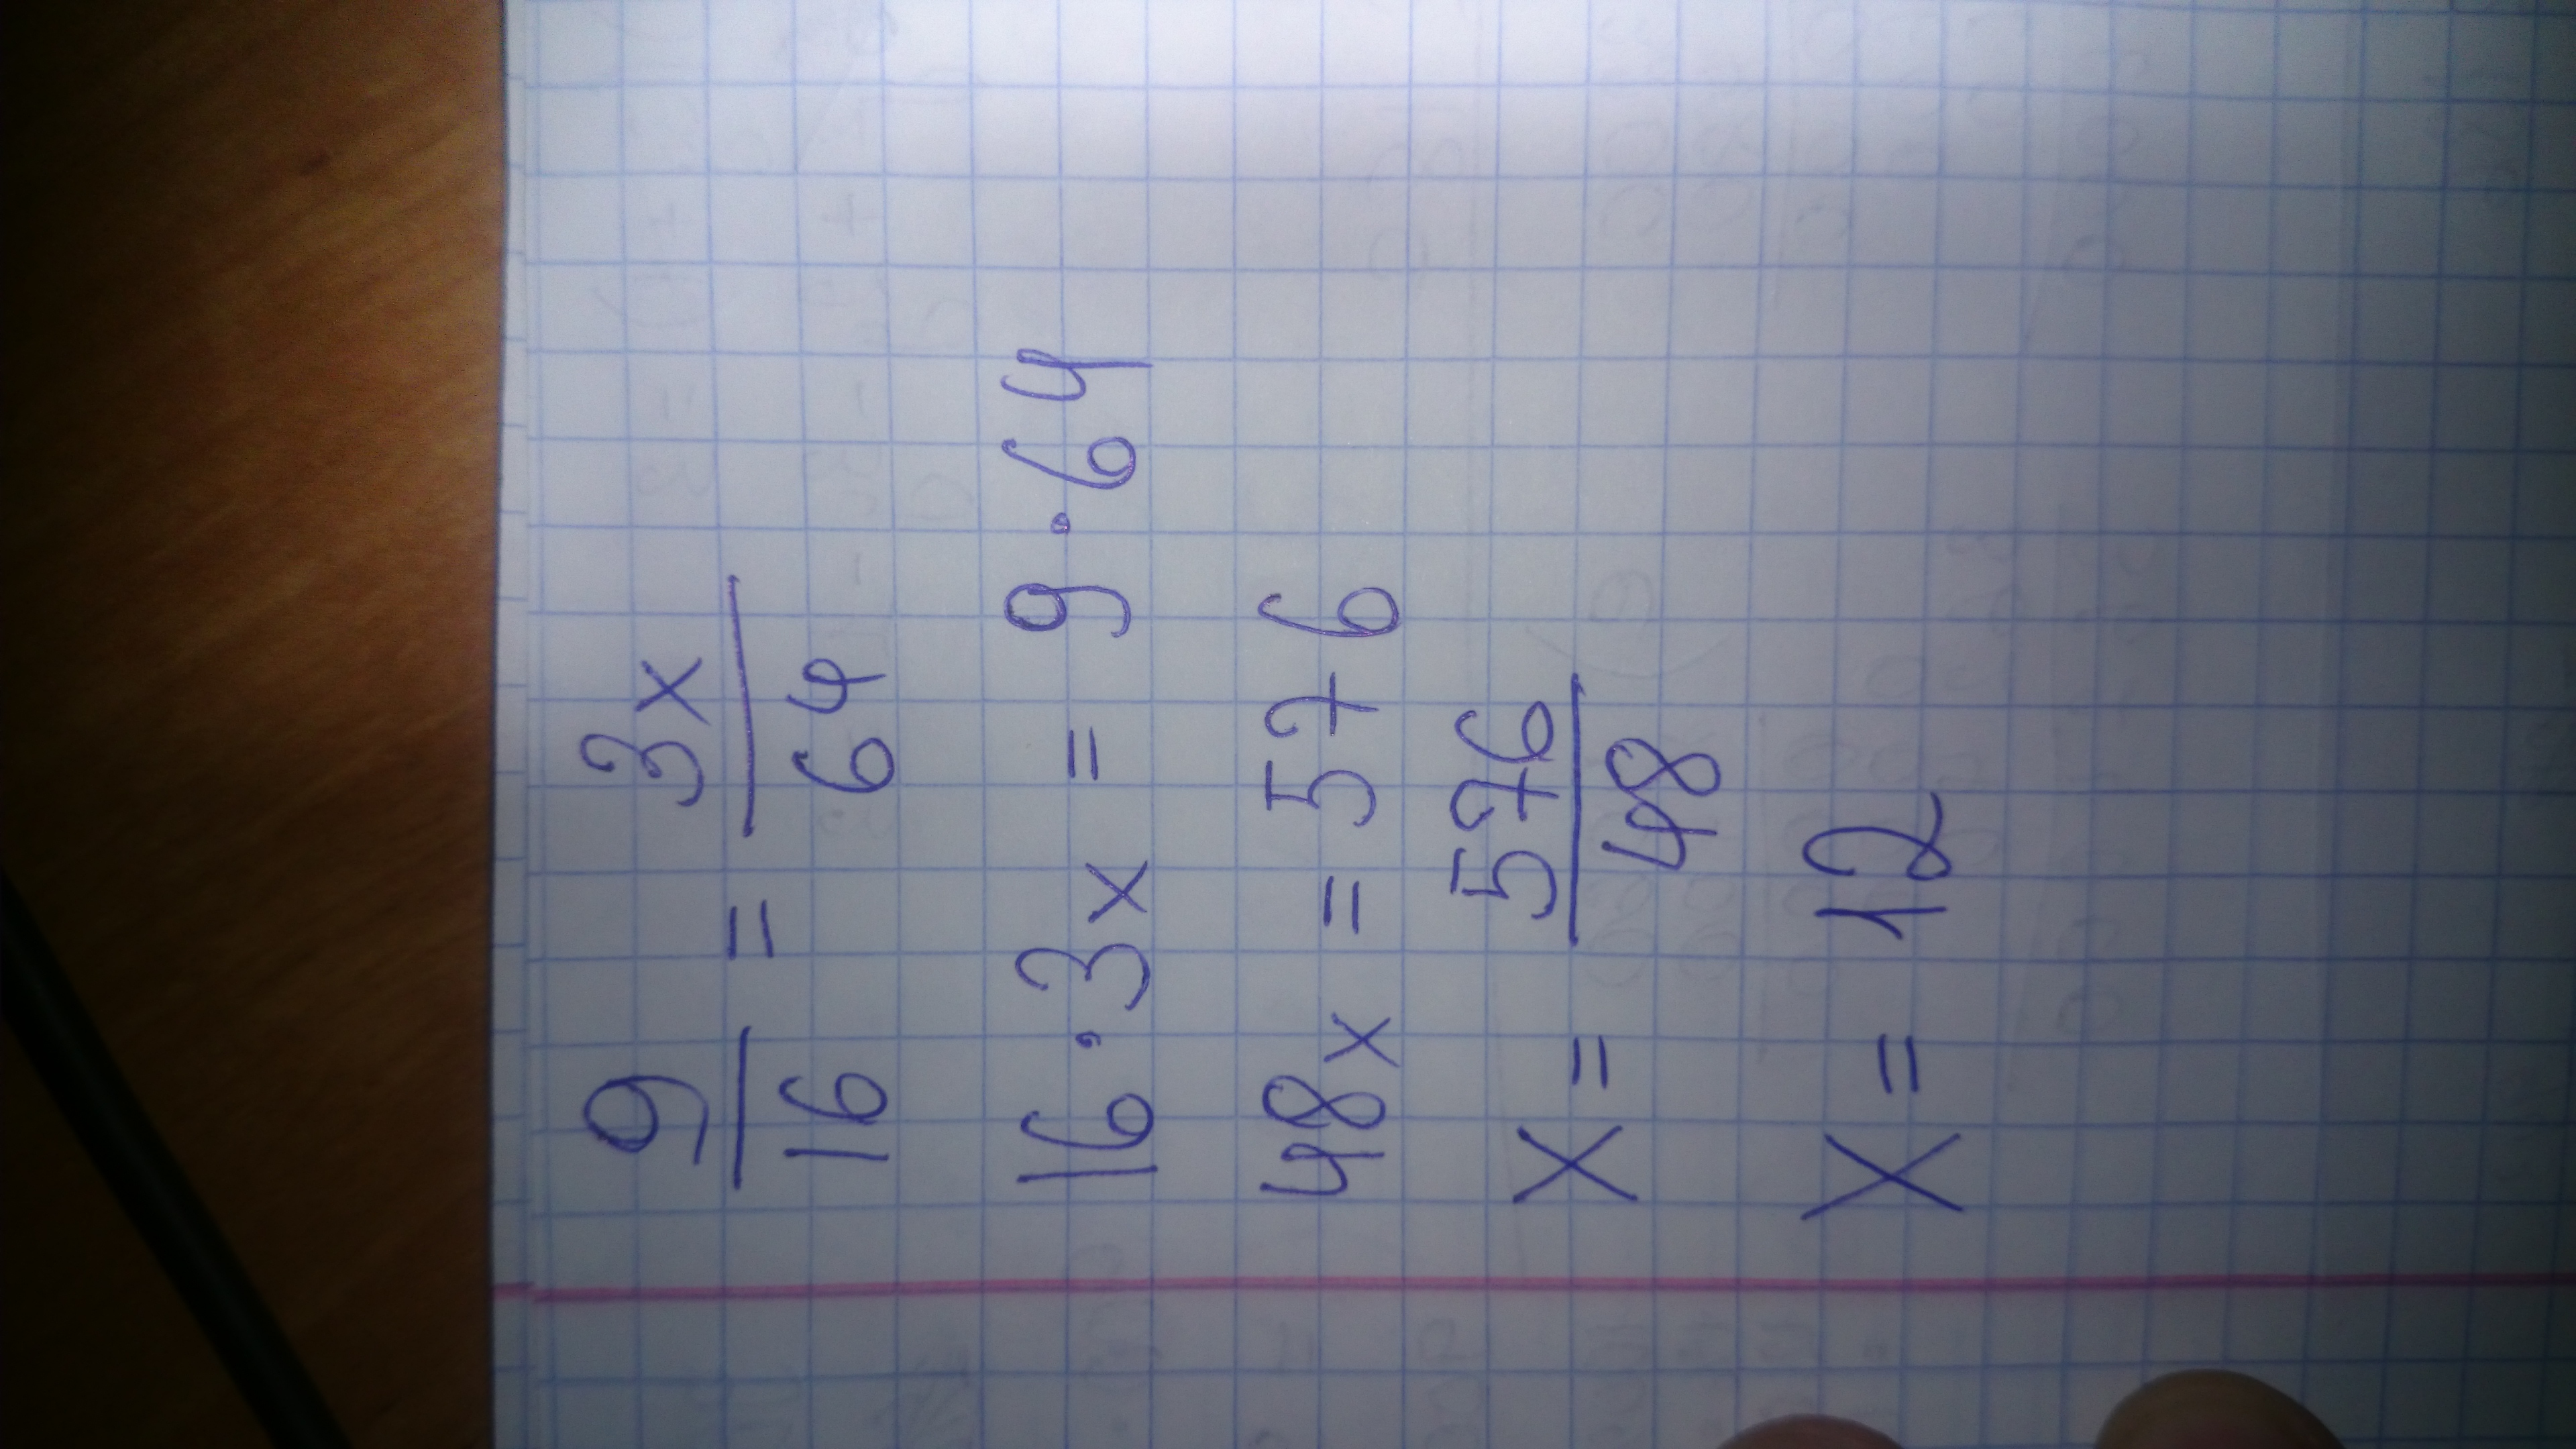 9/16 = 3x/64
16·3x = 9·64
48x = 576
x = 576/48
x = 12